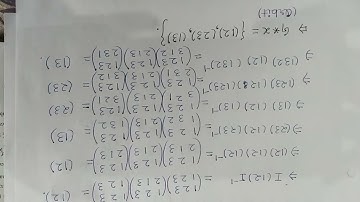 ∴ I (12) I⁻¹ = (1 2 3 / 1 2 3)(1 2 3 / 2 1 3)(1 2 3 / 1 2 3) = (12).
⇒ (12) (12) (12)⁻¹ = (1 2 3 / 2 1 3)(1 2 3 / 2 1 3)(1 2 3 / 2 1 3) = (12)
⇒ (23) (12) (23)⁻¹ = (1 2 3 / 1 3 2)(1 2 3 / 2 1 3)(1 2 3 / 1 3 2) = (13)
⇒ (13) (12) (13)⁻¹ = (1 2 3 / 3 2 1)(1 2 3 / 2 1 3)(1 2 3 / 3 2 1) = (23)
⇒ (123) (12) (123)⁻¹ = (1 2 3 / 2 3 1)(1 2 3 / 2 1 3)(1 2 3 / 3 1 2) = (23)
⇒ (132) (12) (132)⁻¹ = (1 2 3 / 3 1 2)(1 2 3 / 2 1 3)(1 2 3 / 2 3 1) = (13).
⇒ G*x = {(12), (23), (13)}.
(Orbit)